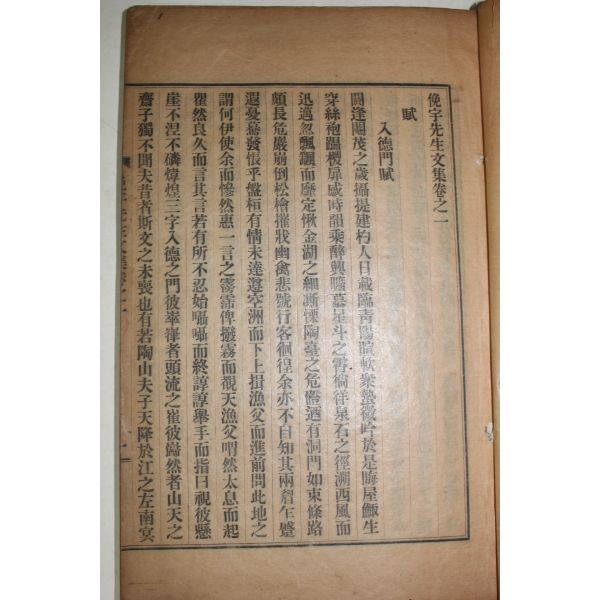 俛宇先生文集卷之一
賦
入德門賦
閼逢閹茂之歲攝提建杓人日載臨靑陽 衆蟄 吟於是晦屋 生
穿絲 躡 扉感時韻乘醉興曠慕星斗之霄徜徉泉石之徑溯西風而
迅邁忽飄飄而靡定愀金湖之 慄陶臺之危 迺有洞門如束條路
頗長危巖崩倒松檜摧戕幽禽悲號行客徊徨余亦不自知其兩 乍蹙
遐憂驀發悵乎盤桓有情未達遵空洲而下上揖漁父而進前問此地之
謂何伊使余而慘然惠一言之霧霈俾撥霧而觀天漁父喟然太息而起
瞿然良久而言其言若有所不忍始囁囁而終諄諄擧手而指曰視彼懸
崖不涅不磷煒煌三字入德之門彼崒嵂者頭流之崔彼 然者山天之
齋子獨不聞夫昔者斯文之未喪也有若陶山夫子天降於江之左南冥